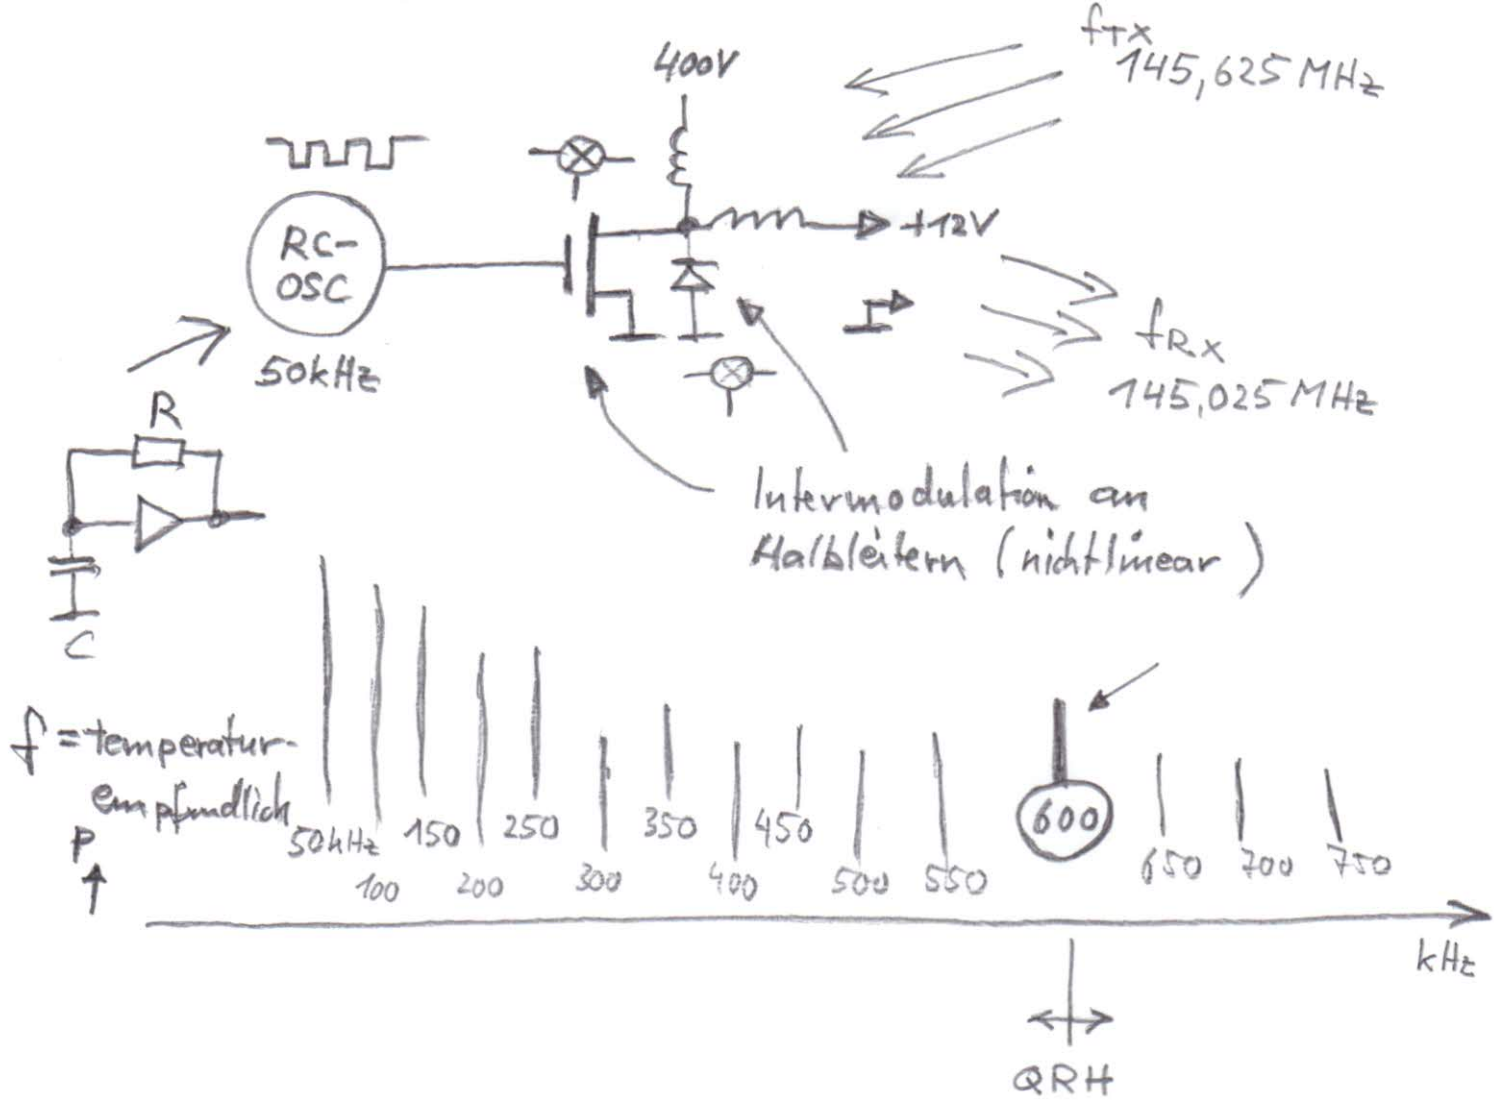 fTX
145,625 MHz
400V
RC-
OSC
50kHz
+12V
fRX
145,025 MHz
R
C
Intermodulation an
Halbleitern (nichtlinear)
f = temperatur-
empfindlich
P
50kHz
100
150
200
250
300
350
400
450
500
550
600
650
700
750
kHz
QRH